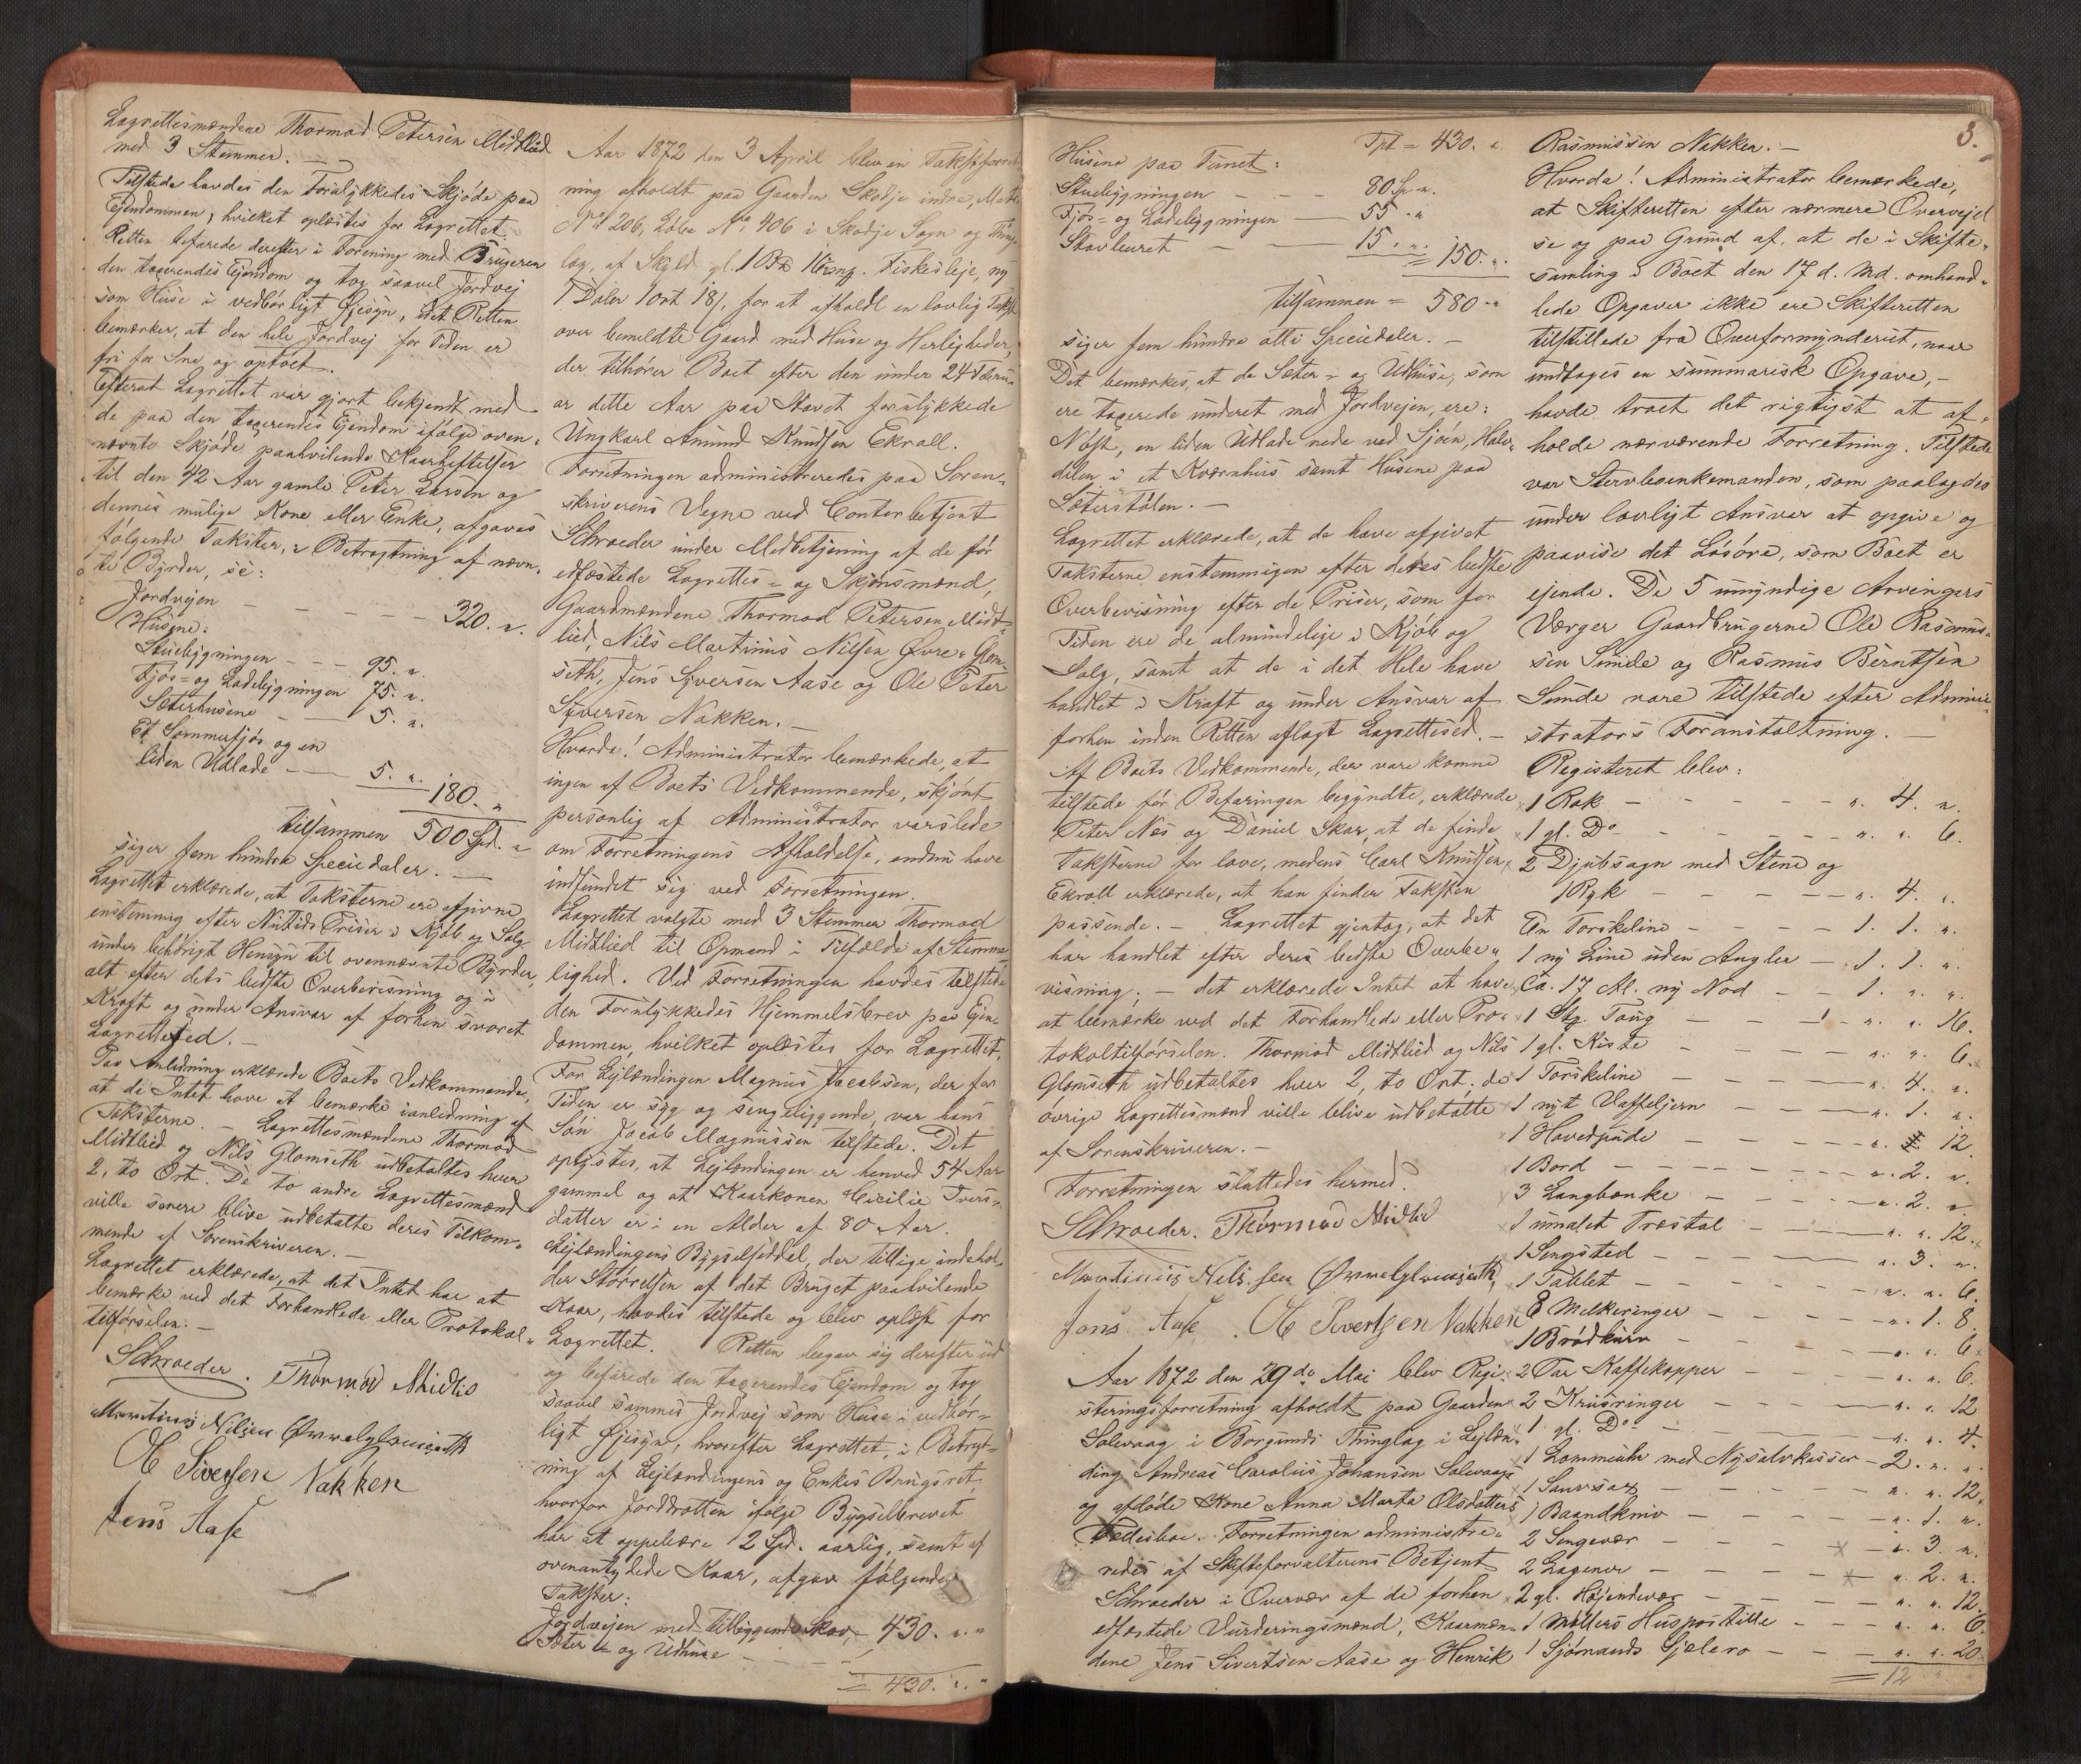 Lagrettesmændene Thormod Petersen Midtlied
med 3 Stemmer. —
Tilstede havdes den Forulykkedes Skjøde paa
Ejendommen, hvilket oplæstes for Lagrettet.
Retten befarede derefter i Forening med Brugeren
den taxerendes Ejendom og tog saavel Jordvej
som Huse i vedbørligt Øjesyn, idet Retten
bemærker, at den hele Jordvej for Tiden er
fri for Sne og optøet.
Efterat Lagrettet var gjort bekjendt med
de paa den taxerendes Ejendom ifølge oven-
nævnte Skjøde paahvilende Kaarheftelser
til den 42 Aar gamle Peter Larsen og
dennes mulige Kone eller Enke, afgaves
følgende Takster, i Betragtning af nævn-
te Byrder, se:
Jordvejen — — — — 320. „.
Husene:
Stuebygningen — — 95. „.
Fjøs- og Ladebygningen 75. „.
Sæterhusene — 5. „.
Et Sommerfjøs og en
liden Udlade — 5. „. 180. „
tilsammen 500 Spd. „
siger fem hundre Speciedaler. —
Lagrettet erklærede, at Taksterne ere afgivne
enstemmig efter Nutids Priser i Kjøb og Salg
under behørigt Hensyn til ovennævnte Byrder,
alt efter dets bedste Overbevisning og i
Kraft og under Ansvar af forhen svoret
Lagretteed. —
Paa Anledning erklærede Boets Vedkommende,
at de Intet have at bemærke ianledning af
Taksterne. — Lagrettesmændene Thormod
Midtlied og Nils Glomseth udbetaltes hver
2, to Ort. De to andre Lagrettesmænd
ville senere blive udbetalte deres Tilkom-
mende af Sorenskriveren. —
Lagrettet erklærede, at det Intet har at
bemærke ved det Forhandlede eller Protokol-
tilførselen. —
Schroeder. Thormod Midlid
Martinus Nilsen Øvrelglomseth
O Siversen Nakken
Jens Aase
Aar 1872 den 3 April blev en Takstforret-
ning afholdt paa Gaarden Skodje indre, Matr.
No 206, Løbe No. 406 i Skodje Sogn og Thing-
lag, af Skyld gl. 1 B 16 mrk. Fiskesleje, ny
1 Daler 1 ort 18 s, for at afholdt en lovlig Takst
over bemeldte Gaard med Huse og Herligheder,
der tilhører Boet efter den under 24 Febru-
ar dette Aar paa Havet forulykkede
Ungkarl Amund Knudsen Ekroll.
Forretningen administreredes paa Soren-
skriverens Vegne ved Contorbetjent
Schroeder under Medbetjening af de før
edfæstede Lagrettes- og Skjønsmænd,
Gaardmændene Thormod Petersen Midt-
lied, Nils Martinus Nilsen Øvre-Glom-
seth, Jens Syversen Aase og Ole Peter
Syversen Nakken. —
Hvorda! Administrator bemærkede, at
ingen af Boets Vedkommende, skjønt
personlig af Administrator varslede
om Forretningens Afholdelse, endnu have
indfundet sig ved Forretningen.
Lagrettet valgte med 3 Stemmer Thormod
Midtlied til Opmand i Tilfælde af Stemme-
lighed. Ved Forretningen havdes tilstede
den Forulykkedes Hjemmelsbrev paa Ejen-
dommen, hvilket oplæstes for Lagrettet.
For Lejlændingen Magnus Jacobsen, der for
Tiden er syg og sengeliggende, var hans
Søn Jacob Magnussen tilstede. Det
oplystes, at Lejlændingen er henved 54 Aar
gammel og at Kaarkonen Cicilie Ivers-
datter er i en Alder af 80 Aar.
Lejlændingens Bygselseddel, der tillige indehol-
der Størrelsen af det Bruget paahvilende
Kaar, havdes tilstede og blev oplæst for
Lagrettet. Retten begav sig derefter ud
og befarede den taxerendes Ejendom og tog
saavel sammes Jordvej som Huse i vedbør-
ligt Øjesyn, hvorefter Lagrettet, i Betragt-
ning af Lejlændingens og Enkes Brugsret,
hvorfor Jorddrotten ifølge Bygselbrevet
har at oppebære 2 Spd. aarlig, samt af
ovenantydede Kaar, afgav følgende
Takster:
Jordvejen med tilliggende Skov, — 430. „. „
Sæter- og Udhuse — — —
= 430. „. „
Tpt = 430. „
Husene paa Tunet:
Stuebygningen — — 80 Sp „.
Fjøs- og Ladebygningen — 55. „
Stavburet — — 15. „. = 150. „.
tilsammen = 580 „
siger fem hundre otti Speciedaler. —
Det bemærkes, at de Sæter- og Udhuse, som
ere taxerede underet med Jordvejen, ere:
Nøst, en liden Udlade nede ved Sjøen, Halv-
delen i et Kværnhus samt Husene paa
Sæterstølen. —
Lagrettet erklærede, at de have afgivet
Taksterne enstemmigen efter dets bedste
Overbevisning efter de Priser, som for
Tiden ere de almindelige i Kjøb og
Salg, samt at de i det Hele have
handlet i Kraft og under Ansvar af
forhen inden Retten aflagt Lagretteed. —
Af Boets Vedkommende, der vare komne
tilstede før Befaringen begyndte, erklærede
Peter Næs og Daniel Skar, at de finde
Taksterne for lave, medens Carl Knudsen
Ekroll erklærede, at han finder Taksten
passende. — Lagrettet gjentog, at det
har handlet efter deres bedste Overbe-
visning; — det erklærede Intet at have
at bemærke ved det Forhandlede eller Pro-
tokoltilførselen. Thormod Midtlied og Nils
Glomseth udbetaltes hver 2, to Ort. de
øvrige Lagrettesmænd ville blive udbetalte
af Sorenskriveren. —
Forretningen sluttedes hermed.
Schroeder. Thormod Midlid
Martinus Nilssen Øvrelglomseth
Jens Aase. O Sivertsen Nakken
Aar 1872 den 29de Mai blev Regi-
streringsforretning afholdt paa Gaarden
Solevaag i Borgunds Thinglag i Lejlæn-
ding Andreas Carolus Johansen Solevaags
og afdøde Kone Anna Marta Olsdatters
Fællesboe. Forretningen administre-
redes af Skifteforvalterens Betjent
Schroeder i Overvær af de forhen
edfæstede Vurderingsmænd, Kaarmæn-
dene Jens Sivertsen Aase og Henrik
3.
Rasmussen Nakken. —
Hvorda! Administrator bemærkede,
at Skifteretten efter nærmere Overvejel-
se og paa Grund af, at de i Skifte-
samling i Boet den 17 d. Md. omhand-
lede Opgaver ikke ere Skifteretten
tilstillede fra Overformynderiet, naar
undtages en summarisk Opgave, —
havde troet det rigtigst at af-
holde nærværende Forretning. Tilstede
var Stervboenkemanden, som paalagdes
under lovligt Ansvar at opgive og
paavise det Løsøre, som Boet er
ejende. De 5 umyndige Arvingers
Værger Gaardbrugerne Ole Rasmus-
sen Sunde og Rasmus Berntsen
Sunde vare tilstede efter Admini-
strators Foranstaltning. —
Registeret blev:
1 Rok — — „. 4. „.
1 gl. Do — — „. „. 6.
2 Djubsagn med Stene og
1 Ryk — — „. 4. „.
En Torskeline — — 1. 1. „.
1 ny Line uden Angler — 1. 1. „.
Ca. 17 Al. ny Nod — — 1. „. „.
1 Stg. Toug — — „. „. 16.
1 gl. Kiste — — „. „. 6.
1 Torskeline — — „. 4. „.
1 nyt Vaffeljern — — „. 1. „.
1 Hovedpude — — „. „. 12.
1 Bord — — „. 2. „.
3 Langbænke — — „. 2. „.
1 umalet Træstol — — „. „. 12.
1 Sengsted — — „. 3. „.
1 Tablet — — „. „. 6.
8 Melkeringer — — „. 1. 8.
1 Brødkurv — — „. „. 6.
2 Par Kaffekopper — — „. „. 6.
2 Krusringer — — „. „. 12
1 gl. Do — — „. „. 4.
1 Lommeuhr med Nysølvkasser — 2. „. „.
1 Saursax — — „. „. 12.
1 Baandkniv — — „. 1. „.
2 Sengevær — — „. 3. „.
2 Lagener — — „. 2. „.
2 gl. Højendevær — — „. „. 12.
1 Møllers Huspostille — — „. „. 6.
1 Sjømands Sjelero — — „. „. 20.
= 12